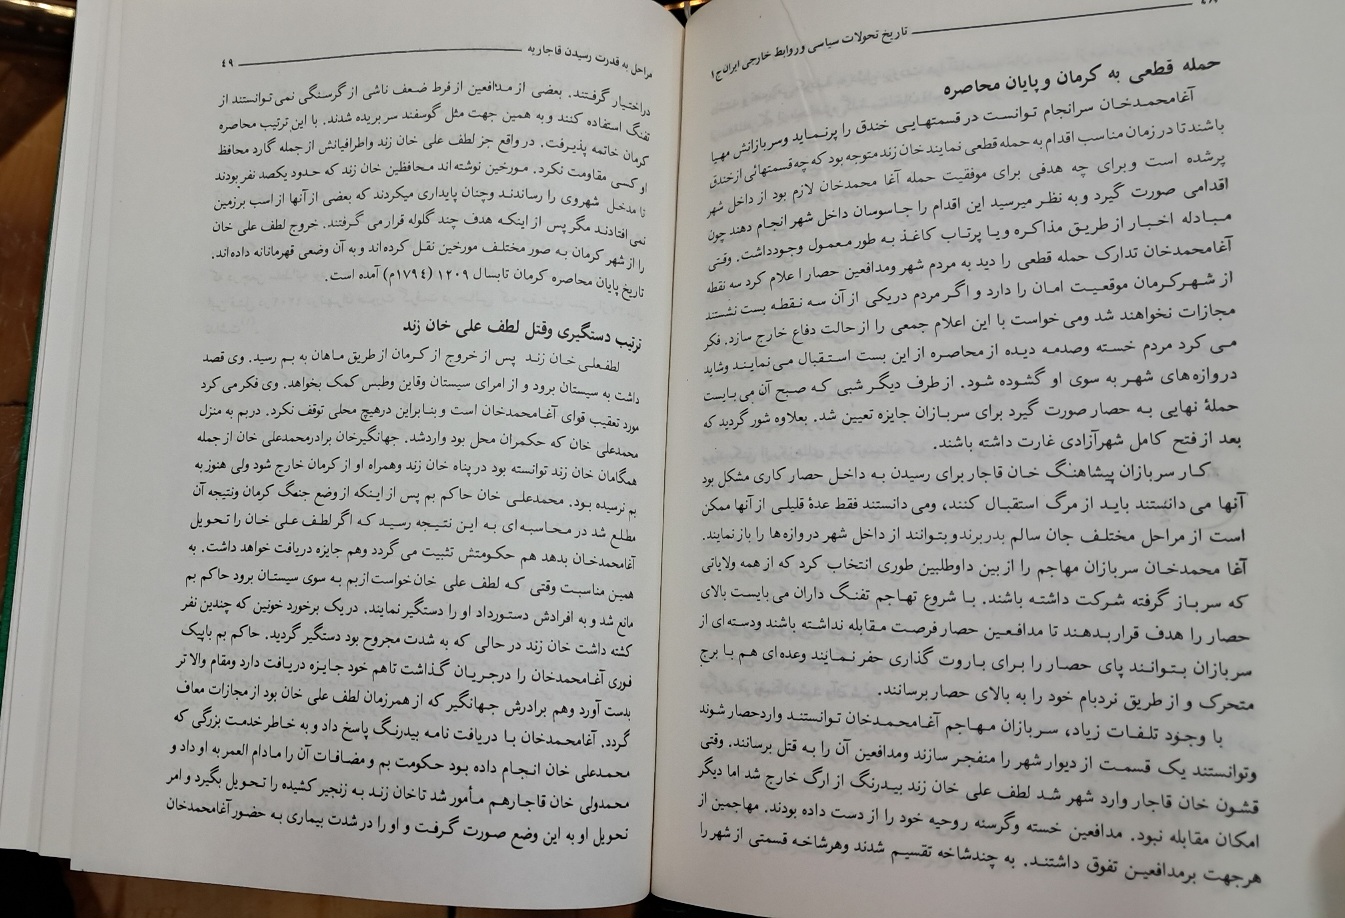 ۴۸
تاریخ تحولات سیاسی و روابط خارجی ایران ج۱
حمله قطعی به کرمان و پایان محاصره
آغامحمدخان سرانجام توانست در قسمتهایی خندق را پرنماید وسربازانش مهیا
باشند تا در زمان مناسب اقدام به حمله قطعی نمایند خان زند متوجه بود که چه قسمتهائی از خندق
پرشده است و برای چه هدفی برای موفقیت حمله آغا محمدخان لازم بود از داخل شهر
اقدامی صورت گیرد و به نظر میرسید این اقدام را جاسوسان داخل شهر انجام دهند چون
مبادله اخبار از طریق مذاکره و یا پرتاب کاغذ به طور معمول وجود داشت. وقتی
آغامحمدخان تدارک حمله قطعی را دید به مردم شهر ومدافعین حصار اعلام کرد سه نقطه
از شهر کرمان موقعیت امان را دارد و اگر مردم در یکی از آن سه نقطه بست نشستند
مجازات نخواهند شد ومی خواست با این اعلام جمعی را از حالت دفاع خارج سازد. فکر
می کرد مردم خسته وصدمه دیده از محاصره از این بست استقبال می نمایند وشاید
دروازه های شهر به سوی او گشوده شود. از طرف دیگر شبی که صبح آن می بایست
حملهٔ نهایی به حصار صورت گیرد برای سربازان جایزه تعیین شد. بعلاوه شور گردید که
بعد از فتح کامل شهر آزادی غارت داشته باشند.
کار سربازان پیشاهنگ خان قاجار برای رسیدن به داخل حصار کاری مشکل بود
آنها می دانستند باید از مرگ استقبال کنند، ومی دانستند فقط عدهٔ قلیلی از آنها ممکن
است از مراحل مختلف جان سالم بدر برند و بتوانند از داخل شهر دروازه ها را باز نمایند.
آغا محمدخان سربازان مهاجم را از بین داوطلبین طوری انتخاب کرد که از همه ولایاتی
که سرباز گرفته شرکت داشته باشند. با شروع تهاجم تفنگ داران می بایست بالای
حصار را هدف قرار بدهند تا مدافعین حصار فرصت مقابله نداشته باشند ودسته ای از
سربازان بتوانند پای حصار را برای باروت گذاری حفر نمایند وعده ای هم با برج
متحرک و از طریق نردبام خود را به بالای حصار برسانند.
با وجود تلفات زیاد، سربازان مهاجم آغامحمدخان توانستند وارد حصار شوند
وتوانستند یک قسمت از دیوار شهر را منفجر سازند ومدافعین آن را به قتل برسانند. وقتی
قشون خان قاجار وارد شهر شد لطف علی خان زند بیدرنگ از ارگ خارج شد اما دیگر
امکان مقابله نبود. مدافعین خسته وگرسنه روحیه خود را از دست داده بودند. مهاجمین از
هرجهت بر مدافعین تفوق داشتند. به چند شاخه تقسیم شدند وهرشاخه قسمتی از شهر را
مراحل به قدرت رسیدن قاجاریه
۴۹
دراختیار گرفتند. بعضی از مدافعین از فرط ضعف ناشی از گرسنگی نمی توانستند از
تفنگ استفاده کنند و به همین جهت مثل گوسفند سر بریده شدند. با این ترتیب محاصره
کرمان خاتمه پذیرفت. در واقع جز لطف علی خان زند واطرافیانش از جمله گارد محافظ
او کسی مقاومت نکرد. مورخین نوشته اند محافظین خان زند که حدود یکصد نفر بودند
تا مدخل شهر وی را رساندند وچنان پایداری میکردند که بعضی از آنها از اسب بر زمین
نمی افتادند مگر پس از اینکه هدف چند گلوله قرار می گرفتند. خروج لطف علی خان
را از شهر کرمان به صور مختلف مورخین نقل کرده اند و به آن وضعی قهرمانانه داده اند.
تاریخ پایان محاصره کرمان تابسال ۱۲۰۹ (۱۷۹۴م) آمده است.
ترتیب دستگیری وقتل لطف علی خان زند
لطفعلی خان زند پس از خروج از کرمان از طریق ماهان به بم رسید. وی قصد
داشت به سیستان برود و از امرای سیستان وقاین وطبس کمک بخواهد. وی فکر می کرد
مورد تعقیب قوای آغامحمدخان است و بنابراین در هیچ محلی توقف نکرد. در بم به منزل
محمدعلی خان که حکمران محل بود وارد شد. جهانگیرخان برادر محمدعلی خان از جمله
همگامان خان زند توانسته بود در پناه خان زند وهمراه او از کرمان خارج شود ولی هنوز به
بم نرسیده بود. محمدعلی خان حاکم بم پس از اینکه از وضع جنگ کرمان ونتیجه آن
مطلع شد در محاسبه ای به این نتیجه رسید که اگر لطف علی خان را تحویل
آغامحمدخان بدهد هم حکومتش تثبیت می گردد وهم جایزه دریافت خواهد داشت. به
همین مناسبت وقتی که لطف علی خان خواست از بم به سوی سیستان برود حاکم بم
مانع شد و به افرادش دستور داد او را دستگیر نمایند. در یک برخورد خونین که چندین نفر
کشته داشت خان زند در حالی که به شدت مجروح بود دستگیر گردید. حاکم بم باپیک
فوری آغامحمدخان را درجریان گذاشت تاهم خود جایزه دریافت دارد ومقام والا تر
بدست آورد وهم برادرش جهانگیر که از همرزمان لطف علی خان بود از مجازات معاف
گردد. آغامحمدخان با دریافت نامه بیدرنگ پاسخ داد و به خاطر خدمت بزرگی که
محمدعلی خان انجام داده بود حکومت بم و مضافات آن را مادام العمر به او داد و
محمدولی خان قاجار هم مأمور شد تا خان زند به زنجیر کشیده را تحویل بگیرد و امر
تحویل او به این وضع صورت گرفت و او را در شدت بیماری به حضور آغامحمدخان